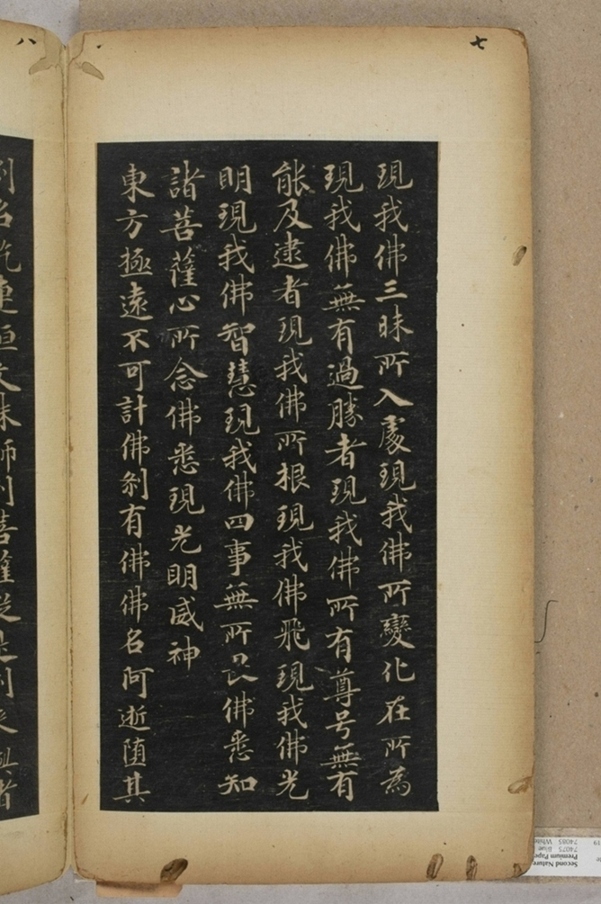 七
現我佛三昧所入處現我佛所變化在所為
現我佛無有過勝者現我佛所有尊号無有
能及逮者現我佛所根現我佛飛現我佛光
明現我佛智慧現我佛四事無所畏佛悉知
諸菩薩心所念佛悉現光明威神
東方極遠不可計佛剎有佛佛名阿逝墮其
八
剎名訖連桓文殊師利菩薩從是剎來
者
Second Nature
Premium Pape
74075 Blue
74085 White